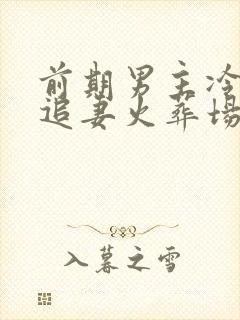 前期男主冷
追妻火葬场
入暮之雪